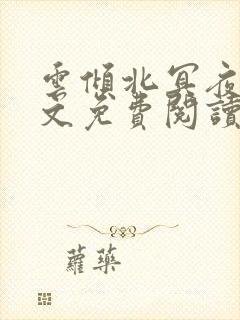 雲傾北冥夜
文免費閱讀
蘿藥